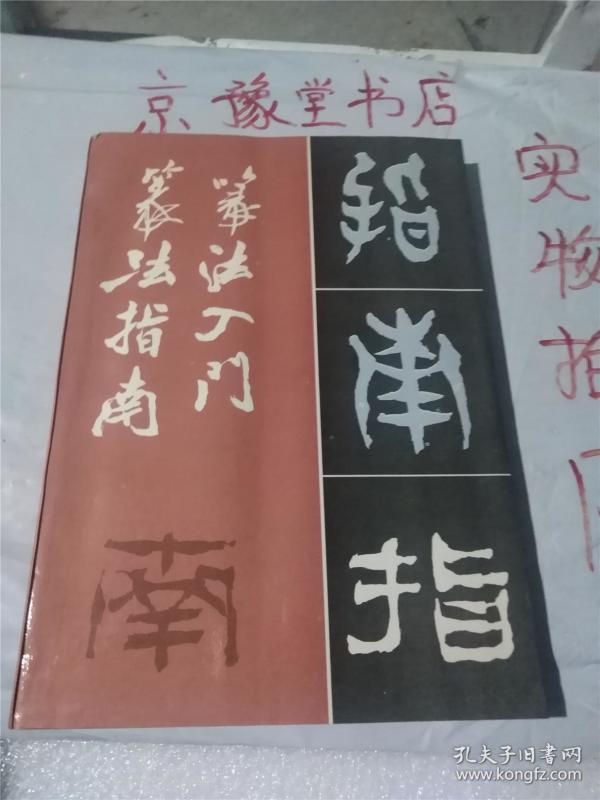 京豫堂书店
实物拍
篆法入门
篆法指南
指
南
指
南
孔夫子旧书网
www.kongfz.com